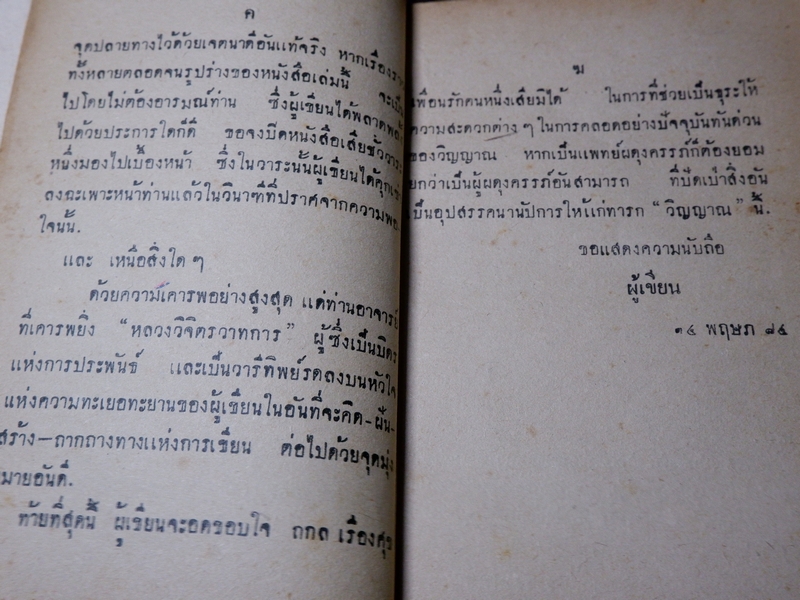 ค
จุดปลายทางไว้ด้วยเจตนาดีอันแท้จริง หากเรื่อง
ทั้งหลายตลอดจนรูปร่างของหนังสือเล่มนี้ จะเป็น
ไปโดยไม่ต้องอารมณ์ท่าน ซึ่งผู้เขียนได้พลาดพลั้ง
ไปด้วยประการใดก็ดี ขอจงปิดหนังสือเสียชั่ววาระ
หนึ่งมองไปเบื้องหน้า ซึ่งในวาระนั้นผู้เขียนได้คุกเข่า
ลงฉะเพาะหน้าท่านแล้วในวินาฑีที่ปราศจากความพอ
ใจนั้น.
และ เหนือสิ่งใด ๆ
ด้วยความเคารพอย่างสูงสุด แด่ท่านอาจารย์
ที่เคารพยิ่ง “หลวงวิจิตรวาทการ” ผู้ซึ่งเป็นบิดร
แห่งการประพันธ์ และเป็นวารีทิพย์รดลงบนหัวใจ
แห่งความทะเยอทะยานของผู้เขียนในอันที่จะคิด-ฝัน-
สร้าง-ถากถางทางแห่งการเขียน ต่อไปด้วยจุดมุ่ง
หมายอันดี.
ท้ายที่สุดนี้ ผู้เขียนจะอดขอบใจ ถกล เรืองศุข
ฆ
เพื่อนรักคนหนึ่งเสียมิได้ ในการที่ช่วยเป็นธุระให้
ความสะดวกต่าง ๆ ในการคลอดอย่างปัจจุบันทันด่วน
ของวิญญาณ หากเป็นแพทย์ผดุงครรภ์ก็ต้องยอม
ยกว่าเป็นผู้ผดุงครรภ์อันสามารถ ที่ปัดเป่าสิ่งอัน
เป็นอุปสรรคนานัปการให้แก่ทารก “วิญญาณ” นี้.
ขอแสดงความนับถือ
ผู้เขียน
๑๔ พฤษภ ๘๔